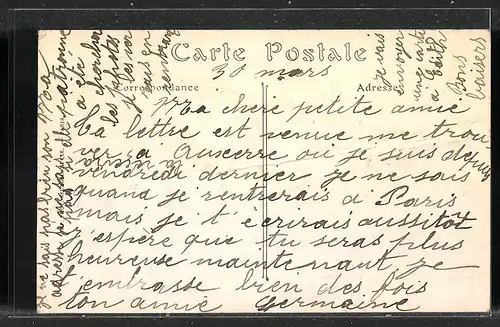 Carte Postale
30 mars
Correspondance
Adresse
Ma chere petite amie
Ta lettre est venue me trou
ver a Auxerre ou je suis depuis
vendredi dernier je ne sais
quand je rentrerais a Paris
mais je t'ecrirais aussitôt
j'espère que tu seras plus
heureuse maintenant je
t'embrasse bien des fois
ton amie Germaine
je vais
envoyer
une carte
à Edith
Bons
baisers
je ne sais pas bien son
adresse